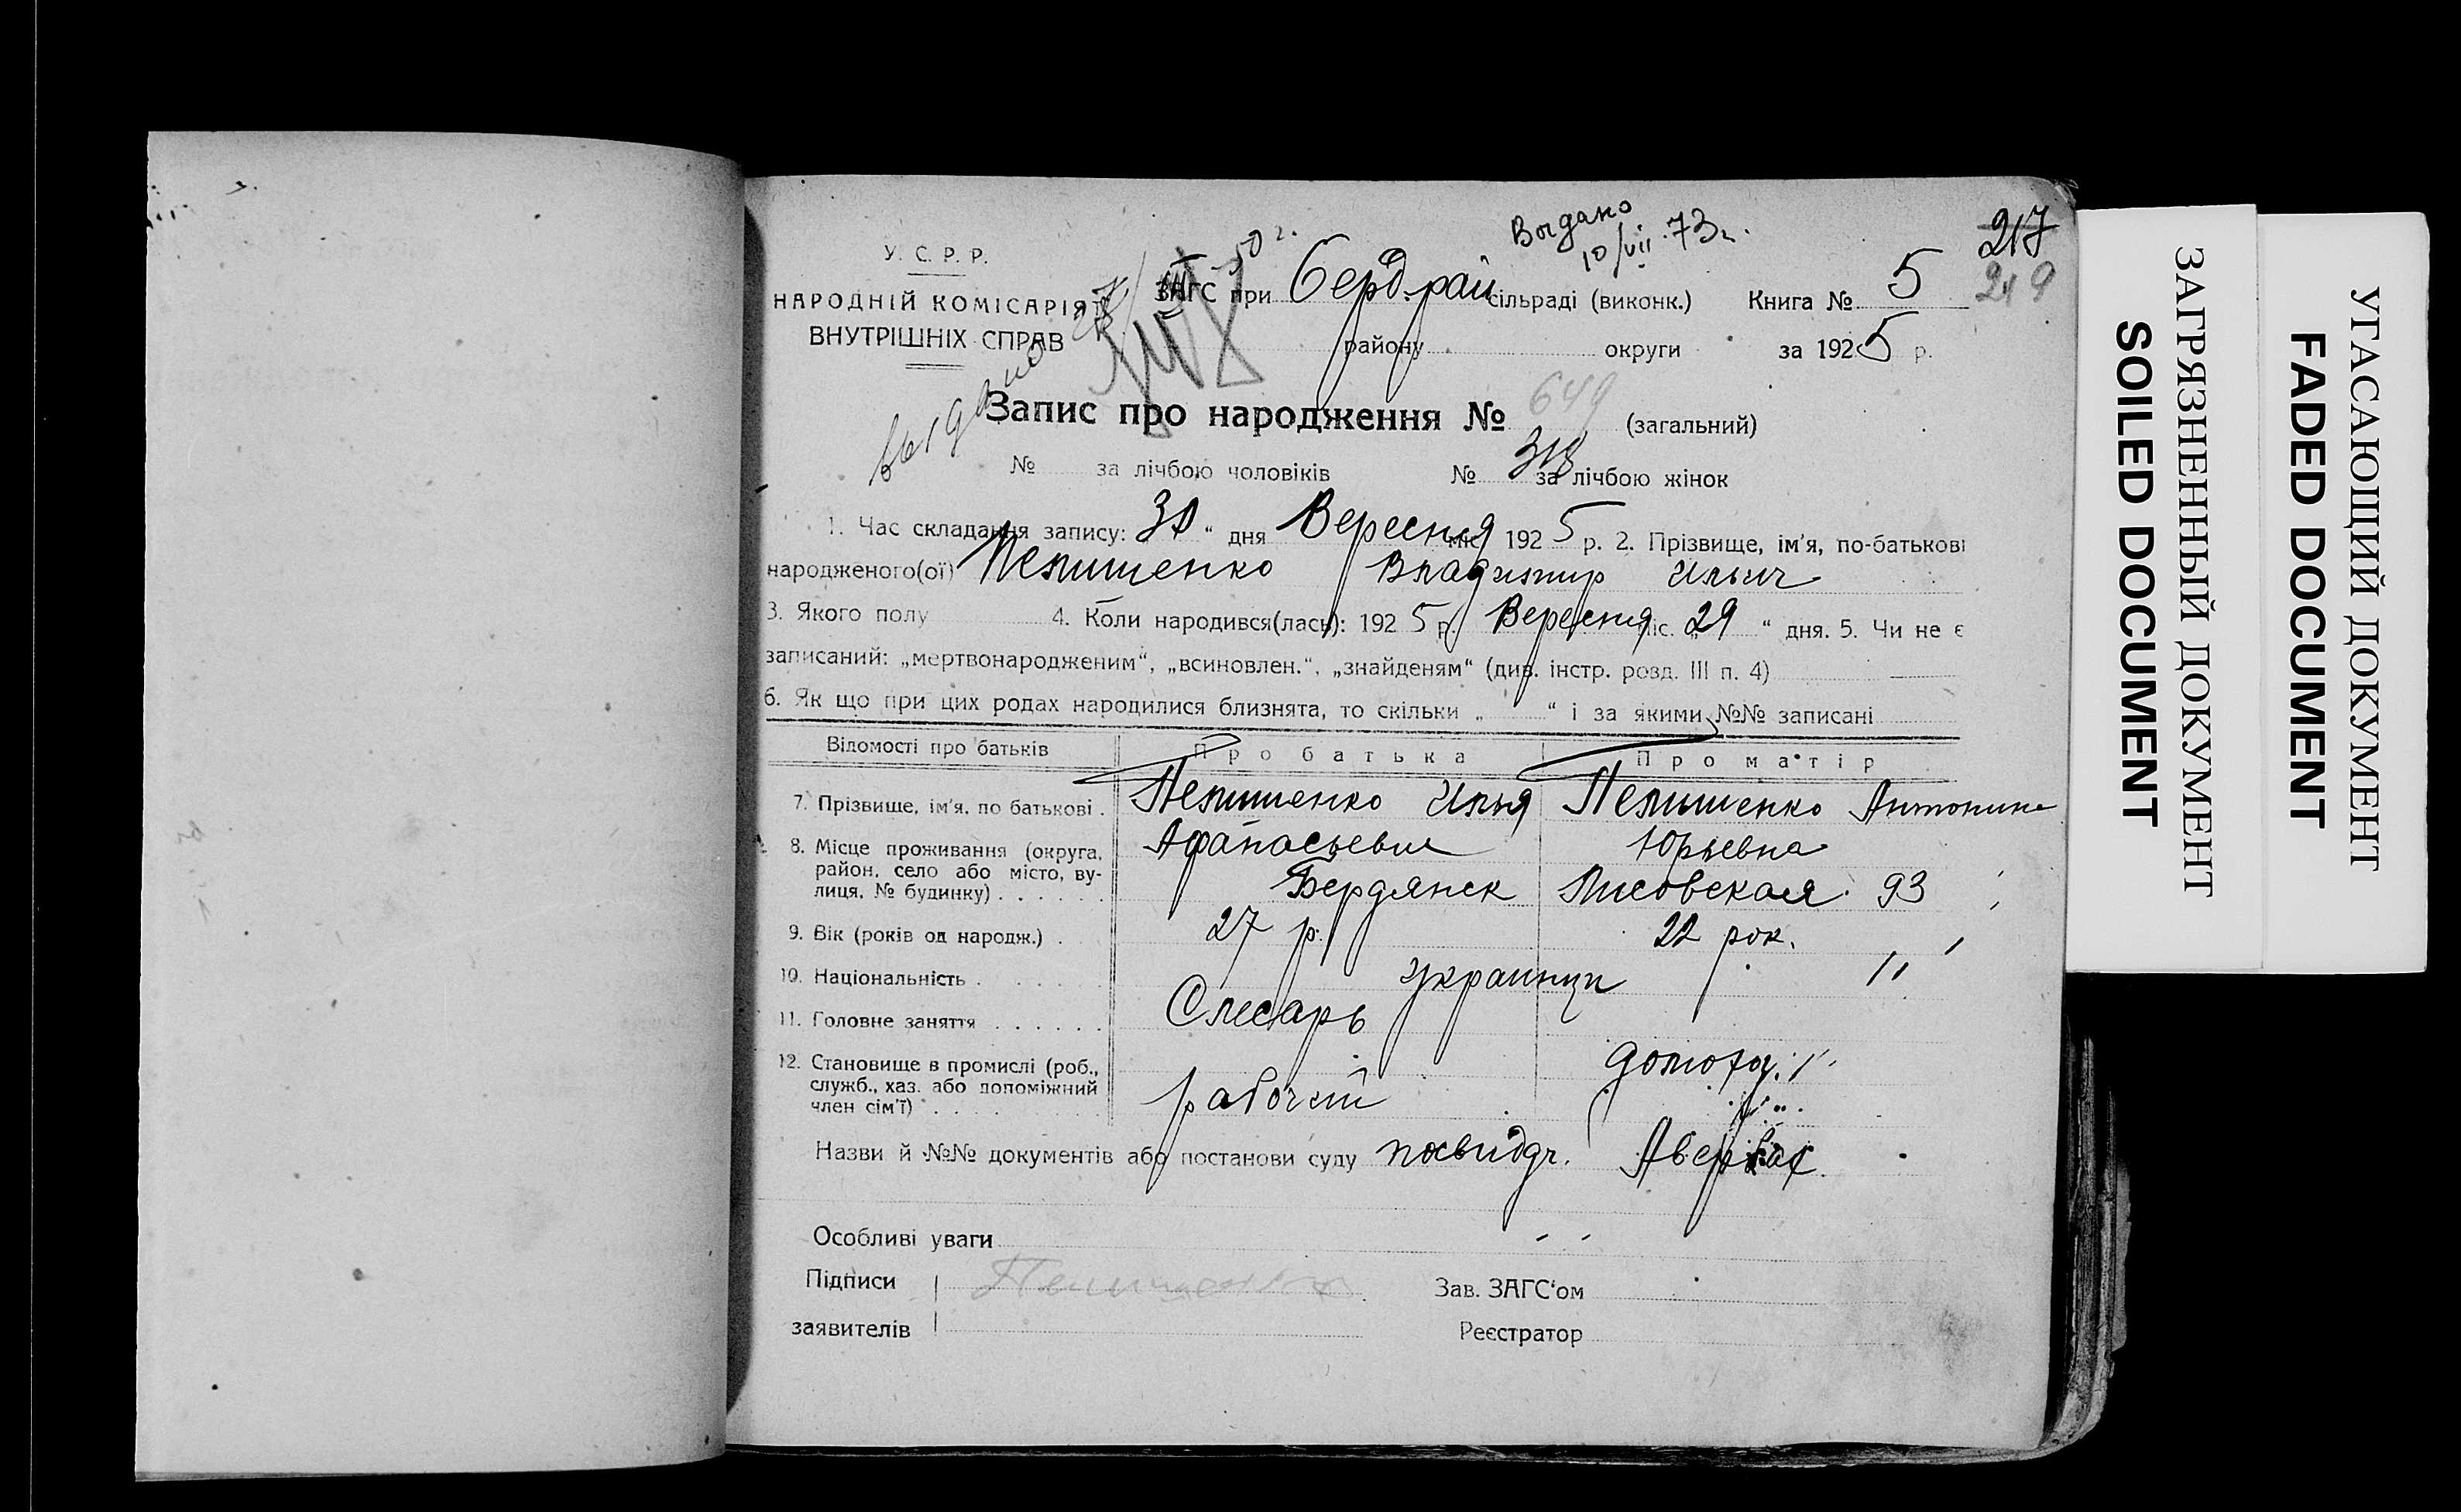 Выдано
10/VII.73г.
217
219
У. С. Р. Р.
НАРОДНІЙ КОМІСАРІЯТ
ВНУТРІШНІХ СПРАВ
50 г.
выдано
ЗАГС при Берд. рай сільраді (виконк.) Книга № 5
району округи за 1925 р.
Запис про народження № 649 (загальний)
№ за лічбою чоловіків № 318 за лічбою жінок
1. Час складання запису: 30 “ дня Вересня міс. 1925 р. 2. Прізвище, ім'я, по-батькові
народженого(ої) Пелишенко Владимир Ильич
3. Якого полу 4. Коли народився(лась): 1925 р. Вересня міс. „29 “ дня. 5. Чи не є
записаний: „мертвонародженим“, „всиновлен.“, „знайденям“ (див. інстр. розд. III п. 4)
6. Як що при цих родах народилися близнята, то скільки „ “ і за якими №№ записані
Відомості про батьків Про батька Про матір
7. Прізвище, ім'я, по батькові . Пелишенко Илья Пелишенко Антонина
Афанасьевич Юрьевна
8. Місце проживання (округа,
район, село або місто, ву-
лиця, № будинку) . . . . . . Бердянск Лисовская 93
9. Вік (років од народж.) . 27 р. 22 рок.
10. Національність . . . . . . украинци
11. Головне заняття . . . . . . Слесарь
12. Становище в промислі (роб.,
служб., хаз. або допоміжний
член сім'ї) . . . . рабочий
Назви й №№ документів або постанови суду посвидч. Авербах
Особливі уваги
Підписи Пелишенко Зав. ЗАГС'ом
заявителів Реєстратор
ЗАГРЯЗНЕННЫЙ ДОКУМЕНТ
SOILED DOCUMENT
УГАСАЮЩИЙ ДОКУМЕНТ
FADED DOCUMENT